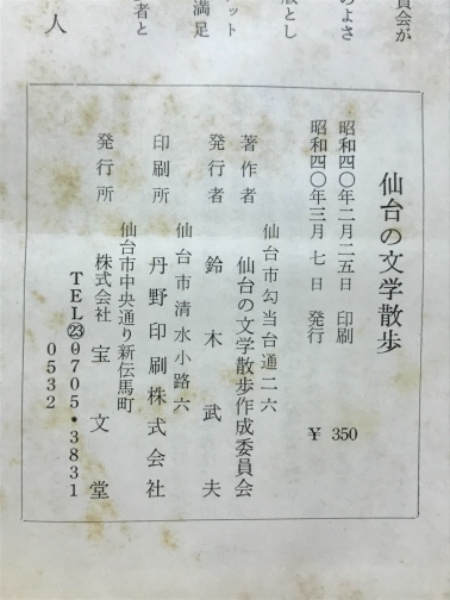 員会が
のよさ
版とし
ット
満足
者と
人
仙台の文学散歩
昭和四〇年二月二五日 印刷
昭和四〇年三月七日 発行
¥ 350
仙台市勾当台通二六
著作者 仙台の文学散歩作成委員会
発行者 鈴木武夫
仙台市清水小路六
印刷所 丹野印刷株式会社
仙台市中央通り新伝馬町
発行所 株式会社 宝文堂
TEL㉓0705・3831
0532